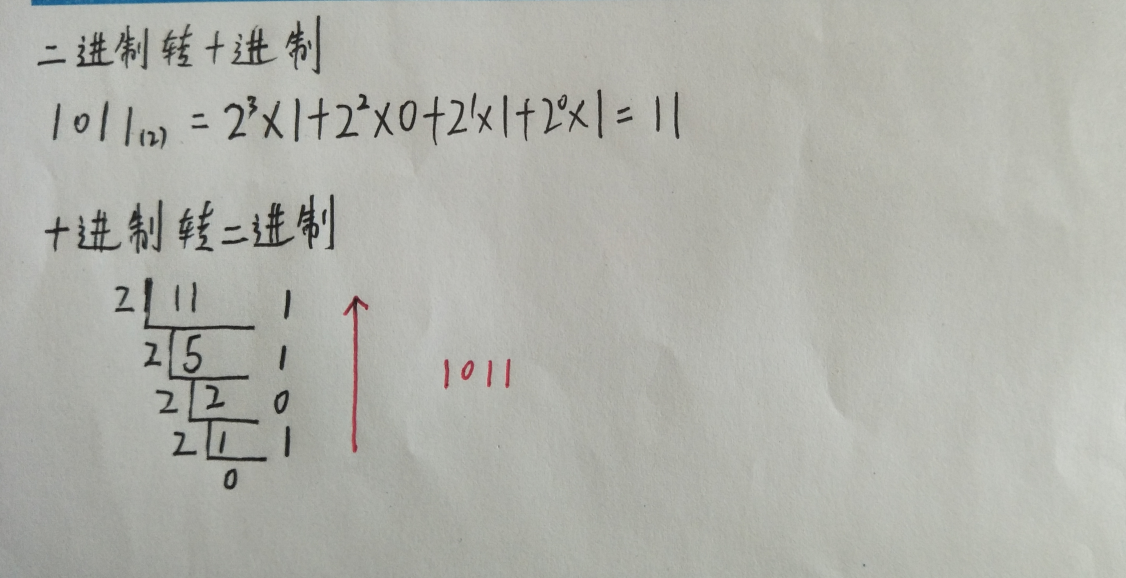 二进制转十进制
1011₍₂₎ = 2³×1+2²×0+2¹×1+2⁰×1= 11
十进制转二进制
2 11 1
2 5 1
2 2 0
1011
2 1 1
0